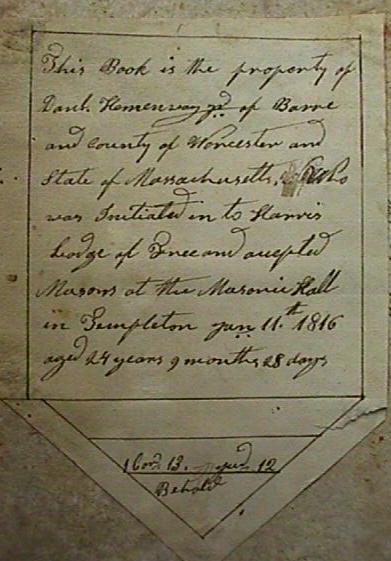 This Book is the property of
Danl. Hemenway jr. of Barre
and County of Worcester and
State of Massachusetts, Who
was Initiated in to Harris
Lodge of Free and accepted
Masons at the Masonic Hall
in Templeton jan 11.th 1816
aged 24 years 9 months 28 days
1 Cor. 13. 12
Behold